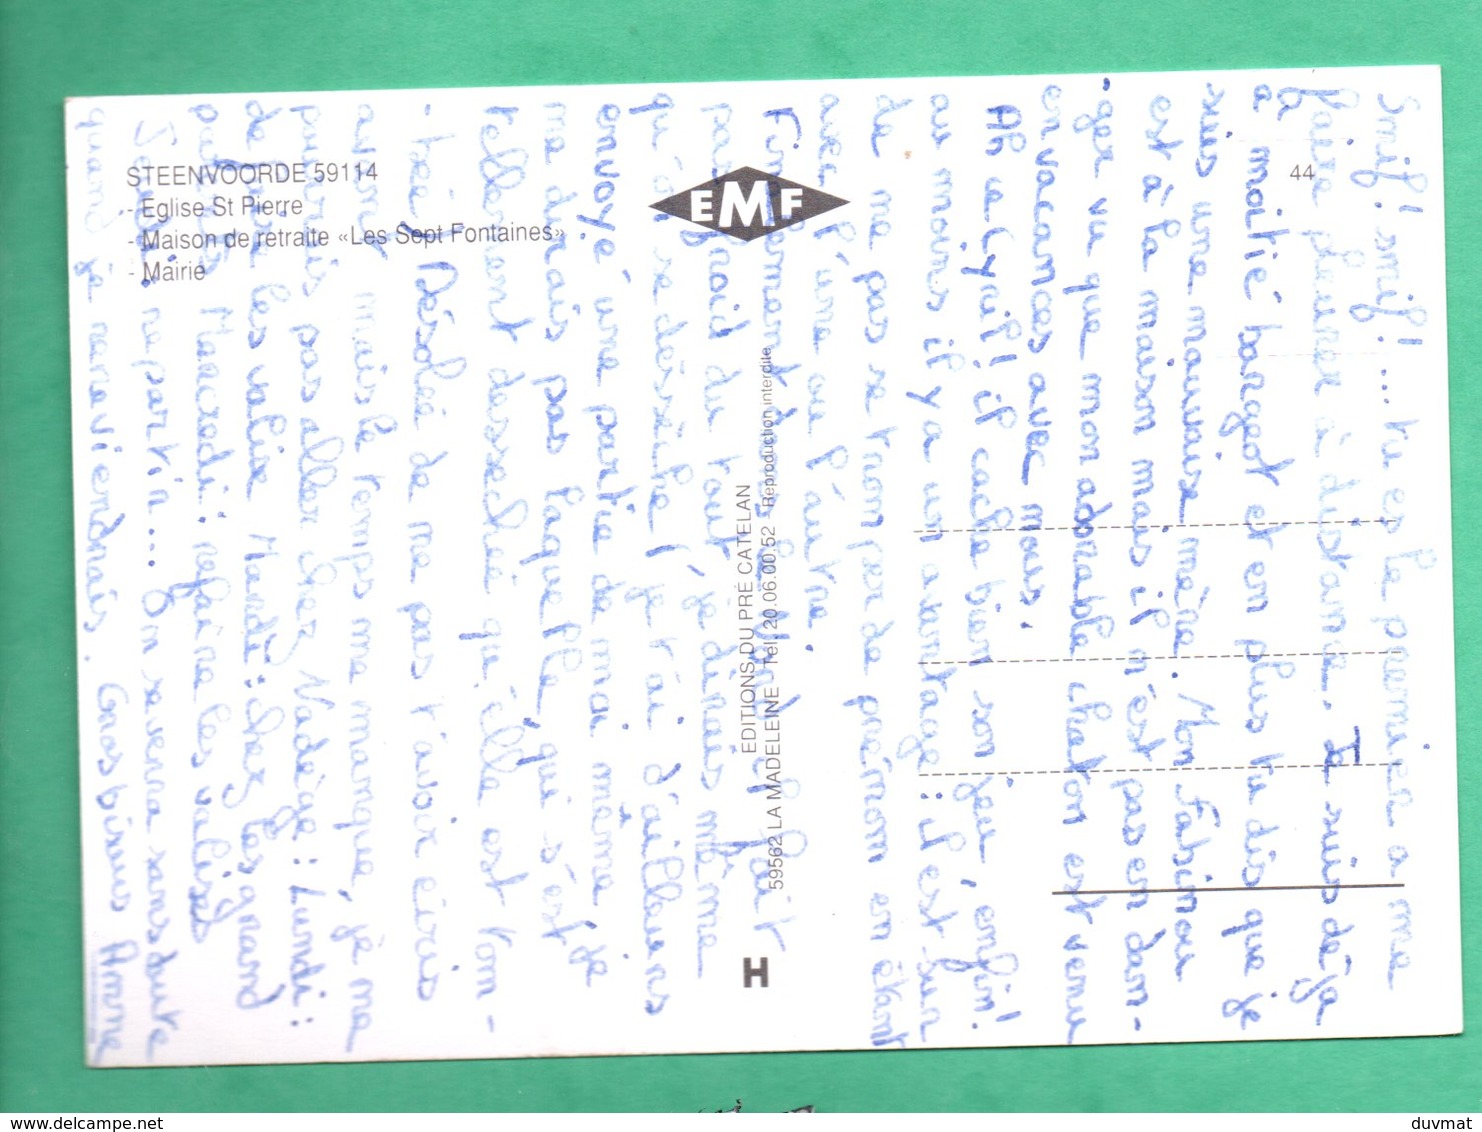 STEENVOORDE 59114
- Eglise St Pierre
- Maison de retraite «Les Sept Fontaines»
- Mairie
EMF
44
EDITIONS DU PRÉ CATELAN
59562 LA MADELEINE Tel. 20.06.00.52 Reproduction interdite
H
Snif! snif!.... tu es le premier a me
faire pleurer à distance. Je suis déja
à moitié bargot et en plus tu dis que je
suis une mauvaise mère. Mon Fabinou
est à la maison mais il n'est pas en dan-
-ger vu que mon adorable chaton est venu
en vacances avec nous.
Ah ce Cyril! il cache bien son jeu, enfin!
au moins il y a un avantage: il est sur
de ne pas se tromper de prénom en étant
avec l'une ou l'autre.
Finalement il fait
pas froid du tout! je dirais même
qu'on se désèche! je t'ai d'ailleurs
envoyé une partie de moi même je
me dirais pas laquelle, qui s'est
tellement desséchée qu'elle est tom-
-bée. Désolée de ne pas t'avoir écris
avant mais le temps me manque, je ne
pourrais pas aller chez Nadège: Lundi:
de faire les valise Mardi: chez les grand
parents Mercredi: refaire les valises
Jeudi: repartir.... On se verra sans doute
quand je reviendrais. Gros bisous Anne
duvmat